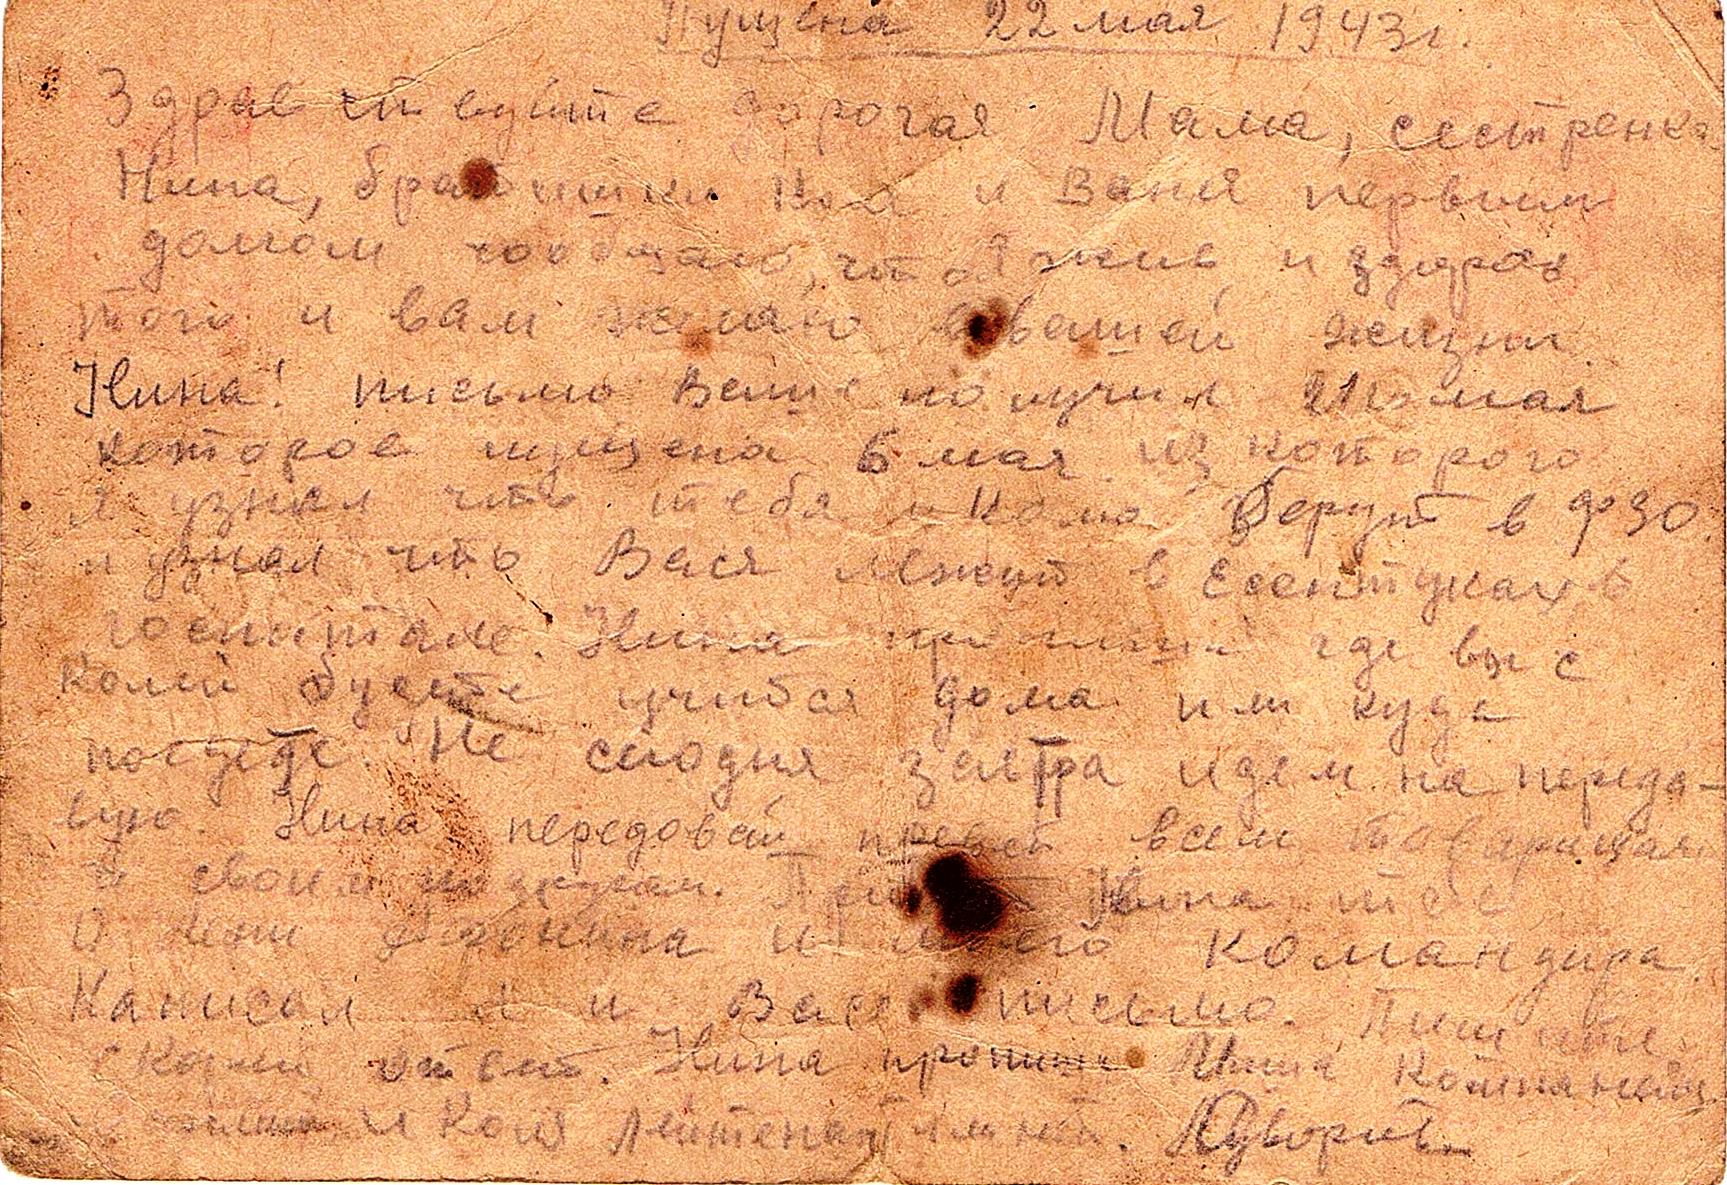 Пущена 22 мая 1943 г.
Здравствуйте дорогая Мама, сестренка
Нина, братишки Коля и Ваня первым
долгом сообщаю, что я жив и здоров
того и вам желаю в вашей жизни.
Нина! письмо Ваше получил 21го мая
которое пущена 6 мая из которого
я узнал что тебя и Колю берут в ФЗО.
и узнал что Вася лежит в Есентуках в
госпитале. Нина пропиши где вы с
Колей будете учится дома или куда
поедете. Не сегодня завтра идем на передо-
вую. Нина передовай превет всем товарищам
и своим подругам. Привет Нина тебе
от и моего командира.
Написал я и Васе письмо. Пишите
скорей ответ. Нина пропиши Миша
и Коля лейтенант или нет. Суворов